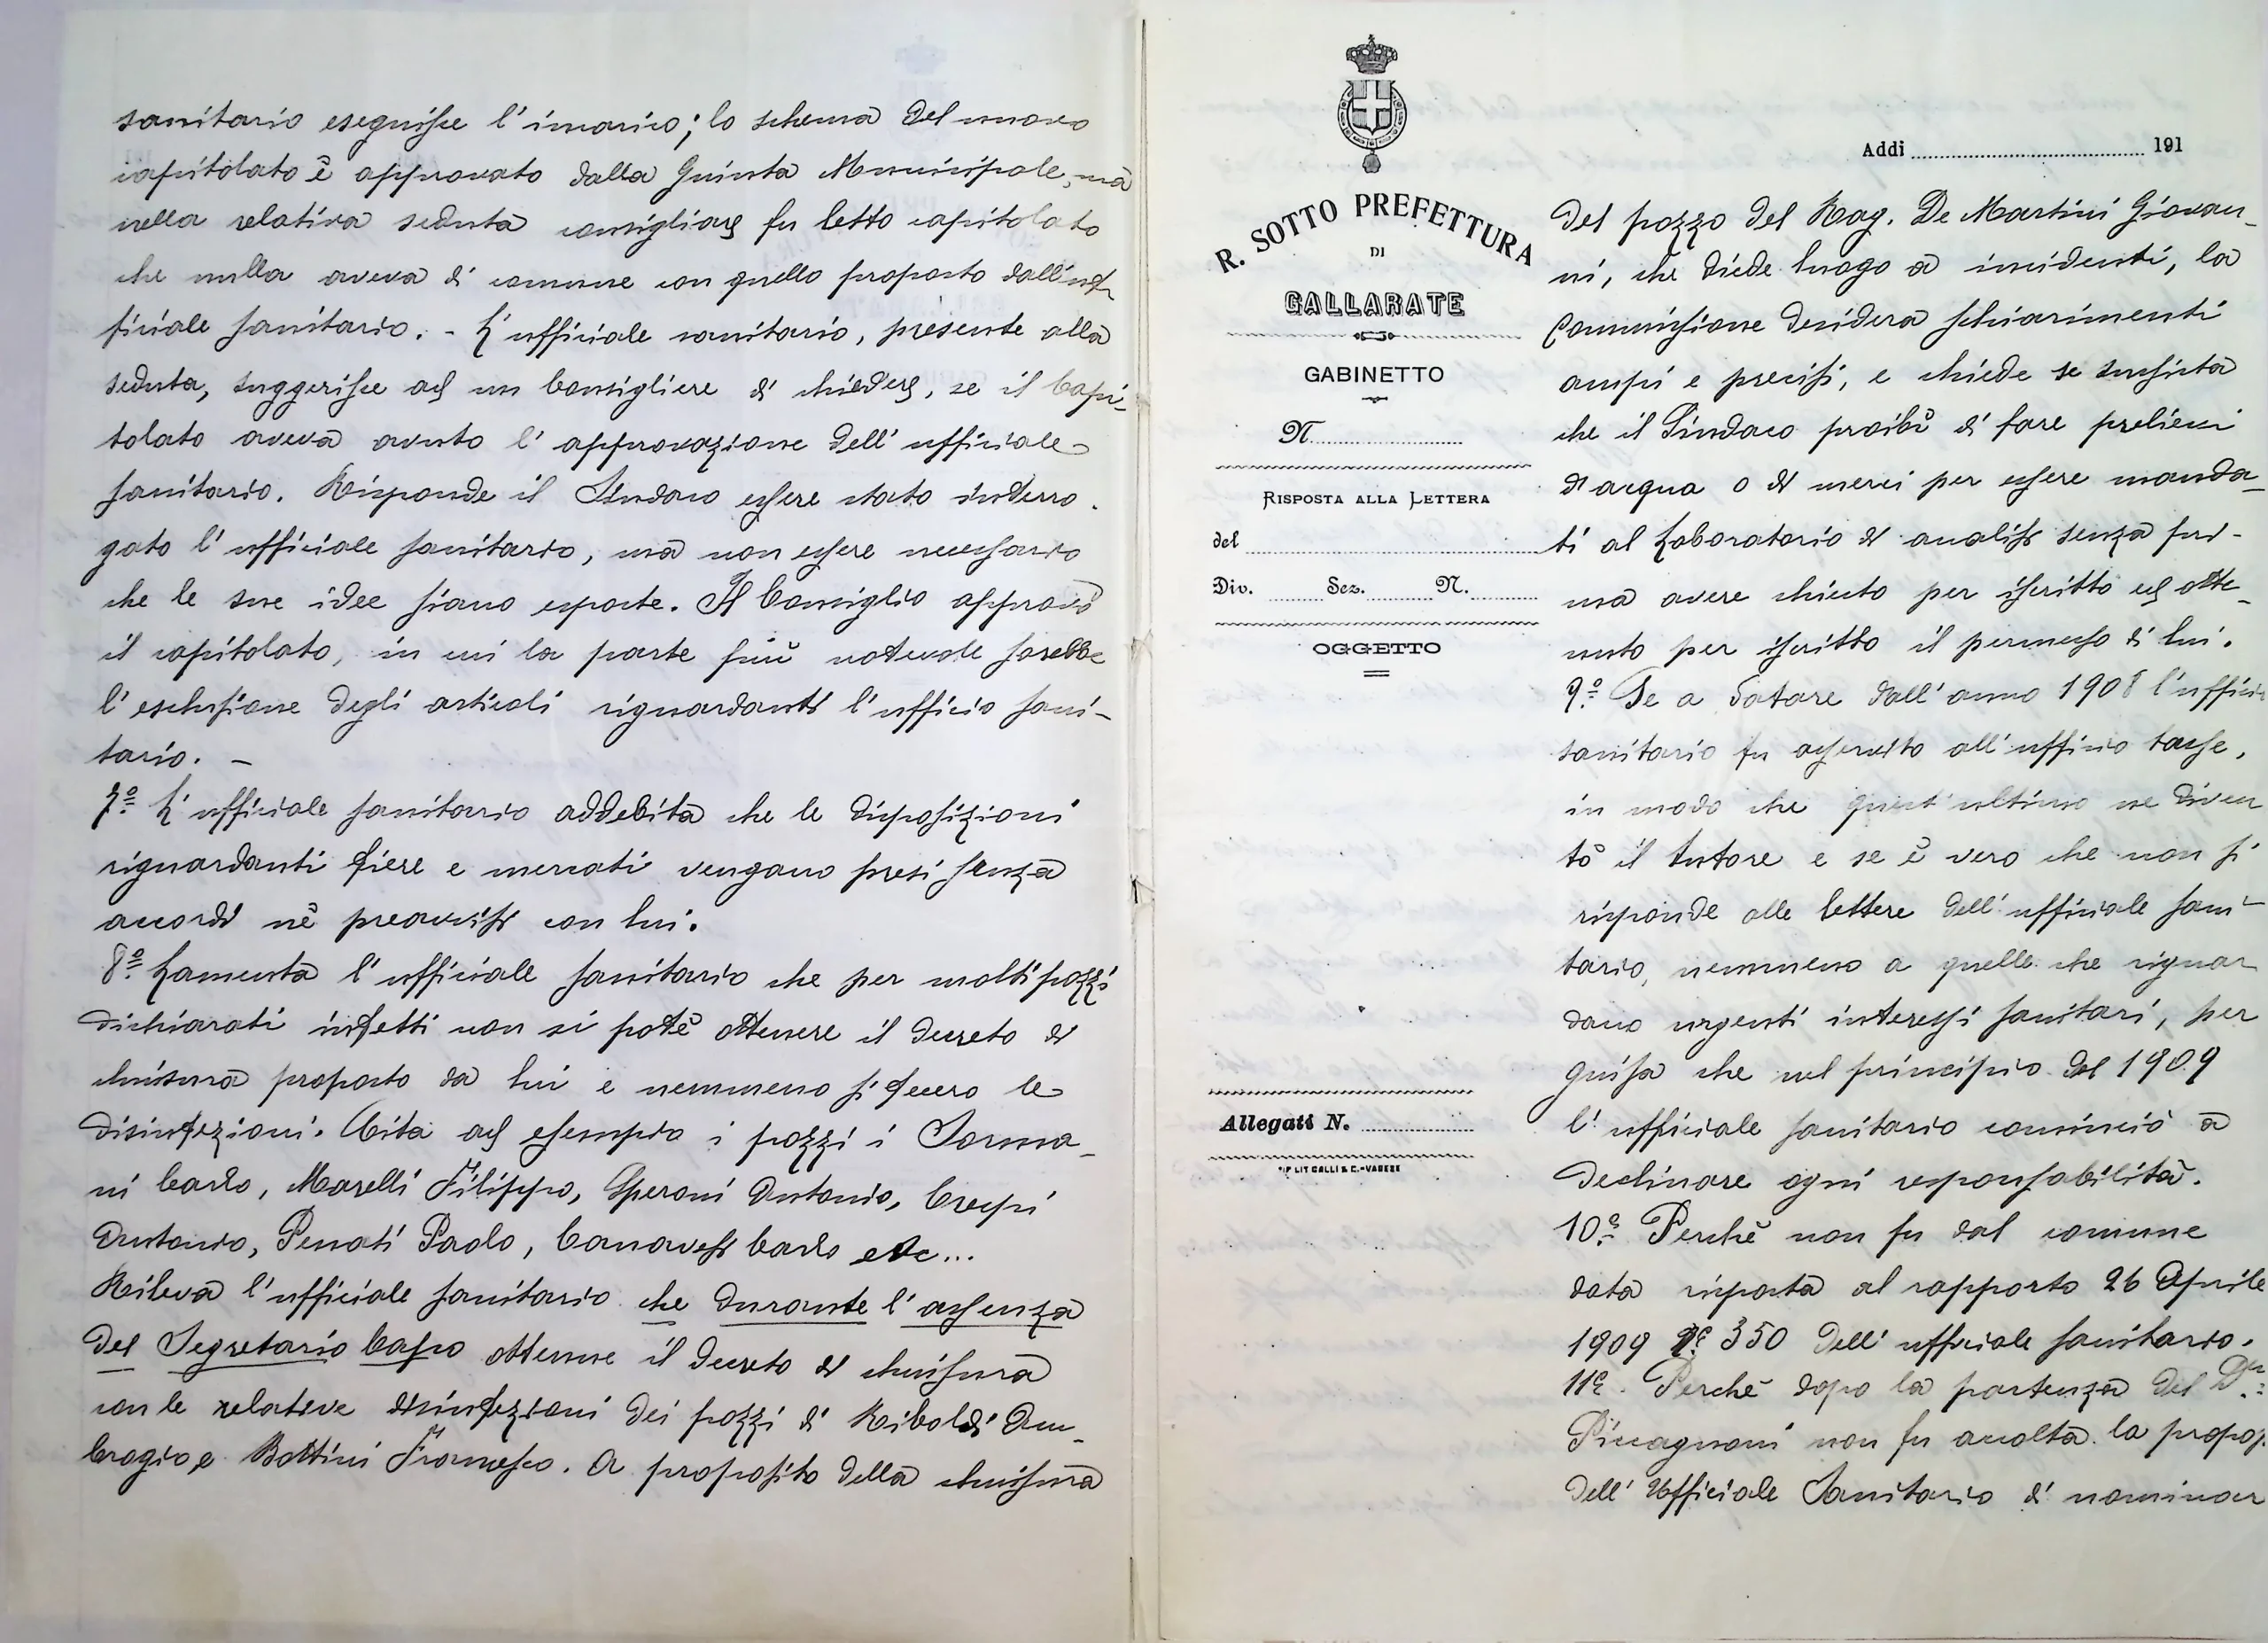 sanitario eseguisce l'incarico; lo schema del nuovo
capitolato è approvato dalla Giunta Municipale, ma
nella relativa seduta consigliare fu letto capitolato
che nulla aveva di comune con quello proposto dall'uf
ficiale sanitario. - L'ufficiale sanitario, presente alla
seduta, suggerisce ad un Consigliere di chiedere, se il Capi-
tolato aveva avuto l'approvazione dell'ufficiale
sanitario. Risponde il Sindaco essere stato interro-
gato l'ufficiale sanitario, ma non essere necessario
che le sue idee siano esposte. Il Consiglio approvò
il capitolato, in cui la parte più notevole sarebbe
l'esclusione degli articoli riguardanti l'ufficio sani-
tario. -
7º L'ufficiale sanitario addebita che le disposizioni
riguardanti fiere e mercati vengano presi senza
accordi nè preavvisi con lui.
8º Lamenta l'ufficiale sanitario che per molti pozzi
dichiarati infetti non si potè ottenere il decreto di
chiusura proposto da lui e nemmeno si fecero le
disinfezioni. Cita ad esempio i pozzi i Sorma-
ni Carlo, Marelli Filippo, Speroni Antonio, Crespi
Antonio, Penati Paolo, Canavesi Carlo etc...
Rileva l'ufficiale sanitario che durante l'assenza
del Segretario Capo ottenne il decreto di chiusura
con le relative disinfezioni dei pozzi di Riboldi Am-
brogio e Bottini Francesco. A proposito della chiusura
R. SOTTO PREFETTURA
DI
GALLARATE
GABINETTO
N.
RISPOSTA ALLA LETTERA
del
Div. Sez. N.
OGGETTO
Allegati N.
TIP LIT GALLI & C. - VARESE
Addì 191
del pozzo del Rag. De Martini Giovan-
ni, che diede luogo a incidenti, la
Commissione desidera schiarimenti
ampi e precisi, e chiede se sussista
che il Sindaco proibì di fare prelievi
d'acqua o di merci per essere manda-
ti al Laboratorio di analisi senza pri-
ma avere chiesto per iscritto ed otte-
nuto per iscritto il permesso di lui.
9º Se a datare dall'anno 1908 l'ufficio
sanitario fu asservito all'ufficio tasse,
in modo che quest'ultimo ne diven
tò il tutore e se è vero che non si
risponde alle lettere dell'ufficiale sani-
tario, nemmeno a quelle che riguar
dano urgenti interessi sanitari, per
guisa che nel principio del 1909
l'ufficiale sanitario cominciò a
declinare ogni responsabilità.
10º Perchè non fu dal comune
data risposta al rapporto 26 Aprile
1909 Nº 350 dell'ufficiale sanitario.
11º. Perchè dopo la partenza del Dr.
Piccagnoni non fu accolta la propos.
dell'Ufficiale Sanitario di nominar